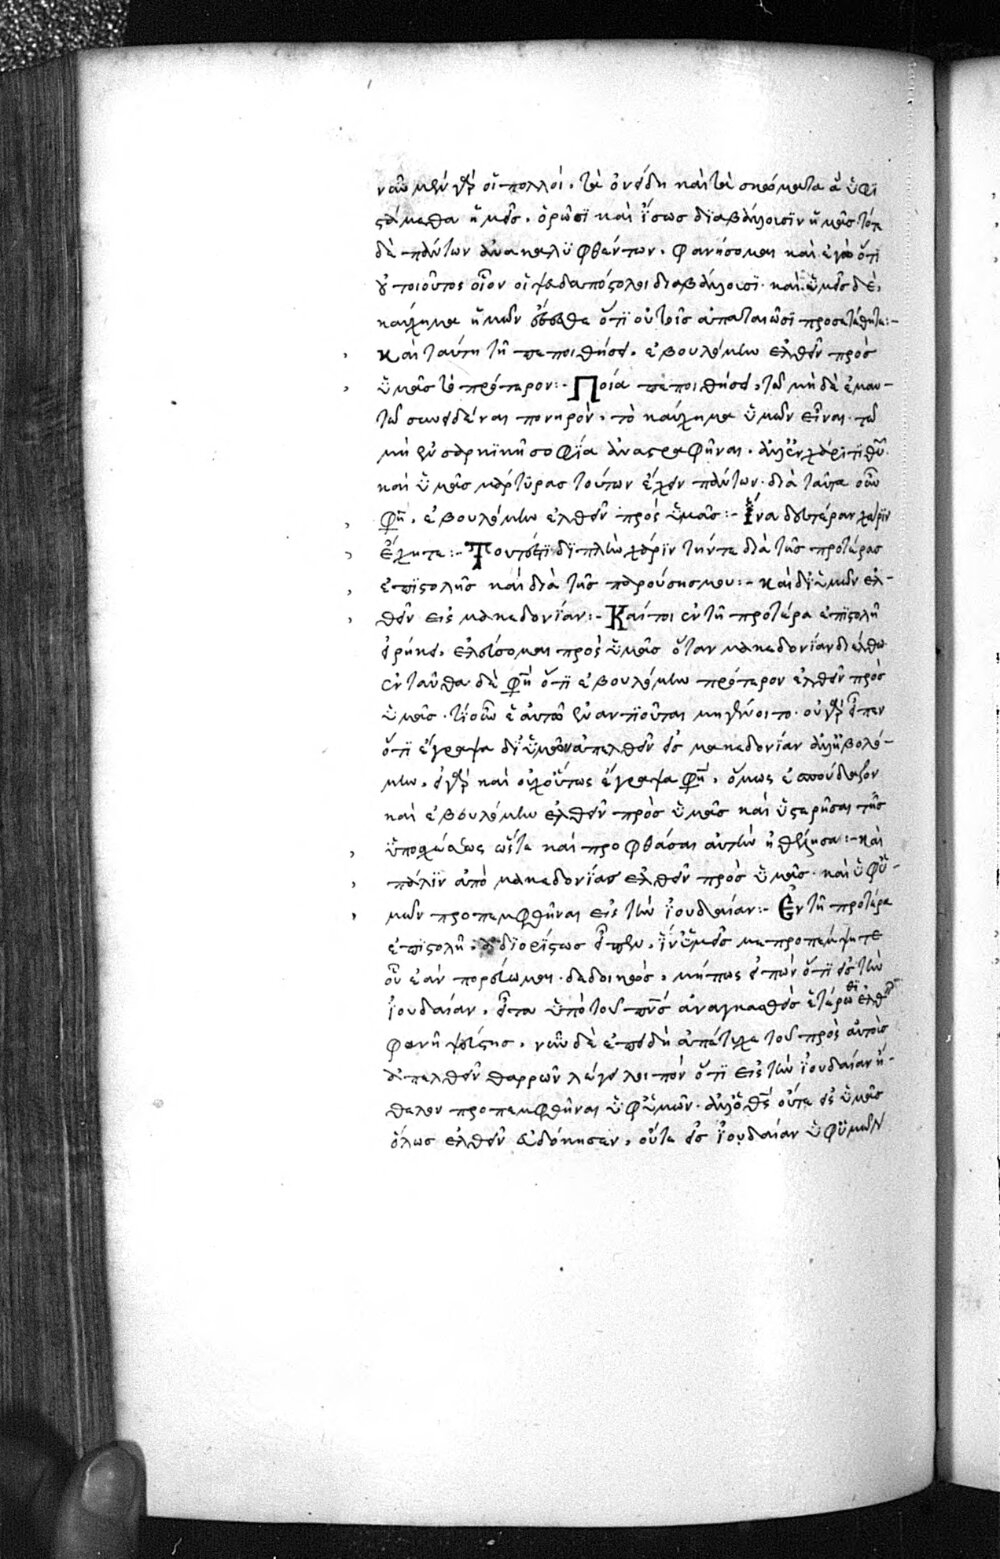 νῦν μὲν γὰρ οἱ πολλοὶ, τὰ ὀνείδη καὶ τὰ σκώμματα ἃ ὑφι
στάμεθα ἡμεῖς, ὁρῶσι καὶ ἴσως διαβάλλουσιν ἡμᾶς τότε
δὲ πάντων ἀνακαλυφθέντων, φανήσομαι καὶ ἐγὼ ὅτι
οὐ τοιοῦτος οἷον οἱ ψευδαπόστολοι διαβάλλουσι· καὶ ὑμεῖς δὲ,
καύχημα ἡμῶν ἔσεσθε ὅτι οὐ τοῖς ἀπατεῶσι προσετέθητε:-
Καὶ ταύτη τῆ πεποιθήσει, ἐβουλόμην ἐλθεῖν πρὸς
ὑμᾶς τὸ πρότερον:- Ποία πεποιθήσει, τῶ μηδὲ ἐμαυ-
τῶ συνειδέναι πονηρὸν, τὸ καύχημα ὑμῶν εἶναι· τῶ
μὴ ἐν σαρκικῆ σοφία ἀναστραφῆναι, ἀλλ' ἐν χάριτι θυ·
καὶ ὑμᾶς μάρτυρας τούτων ἔχειν πάντων· διὰ ταῦτα οὖν
φη, ἐβουλόμην ἐλθεῖν πρὸς ὑμᾶς:- Ἵνα δευτέραν χάριν
ἔχητε:- Τουτέστι διπλῆν χάριν τήν τε διὰ τῆς προτέρας
ἐπιστολῆς καὶ διὰ τῆς παρουσίας μου:- Καὶ δι' ὑμῶν ἐλ-
θεῖν εἰς μακεδονίαν:- Καίτοι ἐν τῆ προτέρα ἐπιστολῆ
εἴρηκε, ἐλεύσομαι πρὸς ὑμᾶς ὅταν μακεδονίαν διέλθω
ἐνταῦθα δὲ φη ὅτι ἐβουλόμην πρότερον ἐλθεῖν πρὸς
ὑμᾶς· τί οὖν ἑαυτῶ ἐναντιοῦται μὴ γένοιτο· οὐ γὰρ εἶπεν
ὅτι ἔγραψα δι' ὑμῶν ἀπελθεῖν εἰς μακεδονίαν ἀλλ' ἐβουλό-
μην, εἰ γὰρ καὶ οὐχ οὕτως ἔγραψα φη, ὅμως ἐσπούδαζον
καὶ ἐβουλόμην ἐλθεῖν πρὸς ὑμᾶς καὶ ὑστερῆσαι τῆς
ὑποσχέσεως ὥστε καὶ προφθάσαι αὐτὴν ἠθέλησα:- Καὶ
πάλιν ἀπὸ μακεδονίας ἐλθεῖν πρὸς ὑμᾶς· καὶ ὑφ' ὑ-
μῶν προπεμφθῆναι εἰς τὴν ἰουδαίαν:- Ἐν τῆ προτέρα
ἐπιστολῆ, ἀδιορίστως εἶπεν, ἵν' ὑμεῖς με προπέμψητε
οὗ ἐὰν πορεύωμαι· δεδοικὼς, μήπως εἰπὼν ὅτι εἰς τὴν
ἰουδαίαν, εἶτα ὑπὸ τοῦ πνς ἀναγκασθεὶς ἑτέρωθι ἐλθεῖν
φανῆ ψεύστης, νῦν δὲ ἐπειδὴ ἀπέτυχε τοῦ πρὸς αὐτοὺς
ἀπελθεῖν θαρρῶν λέγει λοιπὸν ὅτι εἰς τὴν ἰουδαίαν ἤ-
θελον προπεμφθῆναι ὑφ' ὑμῶν· ἀλλ' ὁ θς οὔτε εἰς ὑμᾶς
ὅλως ἐλθεῖν εὐδόκησεν, οὔτε εἰς ἰουδαίαν ὑφ' ὑμῶν